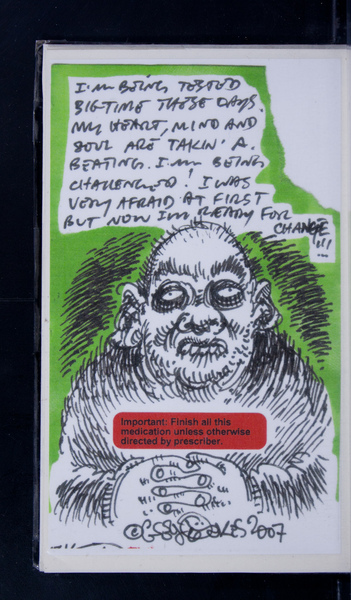 I'm BEING TESTED
BIG-TIME THESE DAYS.
MY HEART, MIND AND
SOUL ARE TAKIN' A
BEATING. I'm BEING
CHALLENGED! I WAS
VERY AFRAID AT FIRST
BUT NOW I'm READY FOR
CHANGE!!!
Important: Finish all this
medication unless otherwise
directed by prescriber.
2007